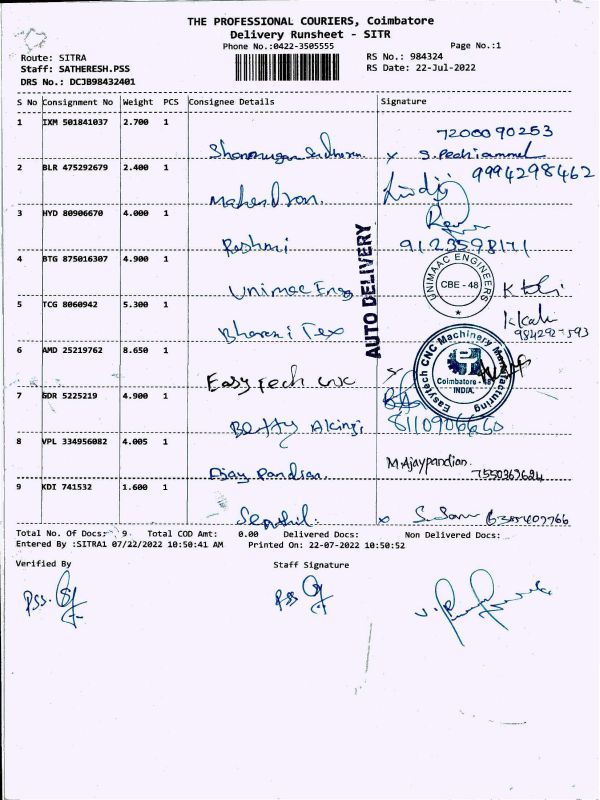 THE PROFESSIONAL COURIERS, Coimbatore
Delivery Runsheet - SITR
Phone No.:0422-3505555
Page No.:1
Route: SITRA
RS No.: 984324
Staff: SATHERESH.PSS
RS Date: 22-Jul-2022
DRS No.: DCJB98432401
S No Consignment No Weight PCS Consignee Details Signature
1 IXM 501841037 2.700 1
7200090253
S. Pechiammal
2 BLR 475292679 2.400 1
9994298462
Mahendran.
3 HYD 80906670 4.000 1
Rashmi
9123598171
4 BTG 875016307 4.900 1
Unimac Engg
AUTO DELIVERY
UNIMAAC ENGINEERS
CBE - 48
5 TCG 8060942 5.300 1
Bharani Tex
6 AMD 25219762 8.650 1
Easy Tech CNC
Easytech CNC Machinery Manufacturing
Coimbatore - 48
INDIA.
7 GDR 5225219 4.900 1
8110906660
8 VPL 334956082 4.005 1
Ejay Pandian.
M.Ajaypandian
7550363624
9 KDI 741532 1.600 1
Senthil.
Total No. Of Docs: 9 Total COD Amt: 0.00 Delivered Docs: Non Delivered Docs:
Entered By :SITRA1 07/22/2022 10:50:41 AM Printed On: 22-07-2022 10:50:52
Verified By Staff Signature
PSS.
PSS